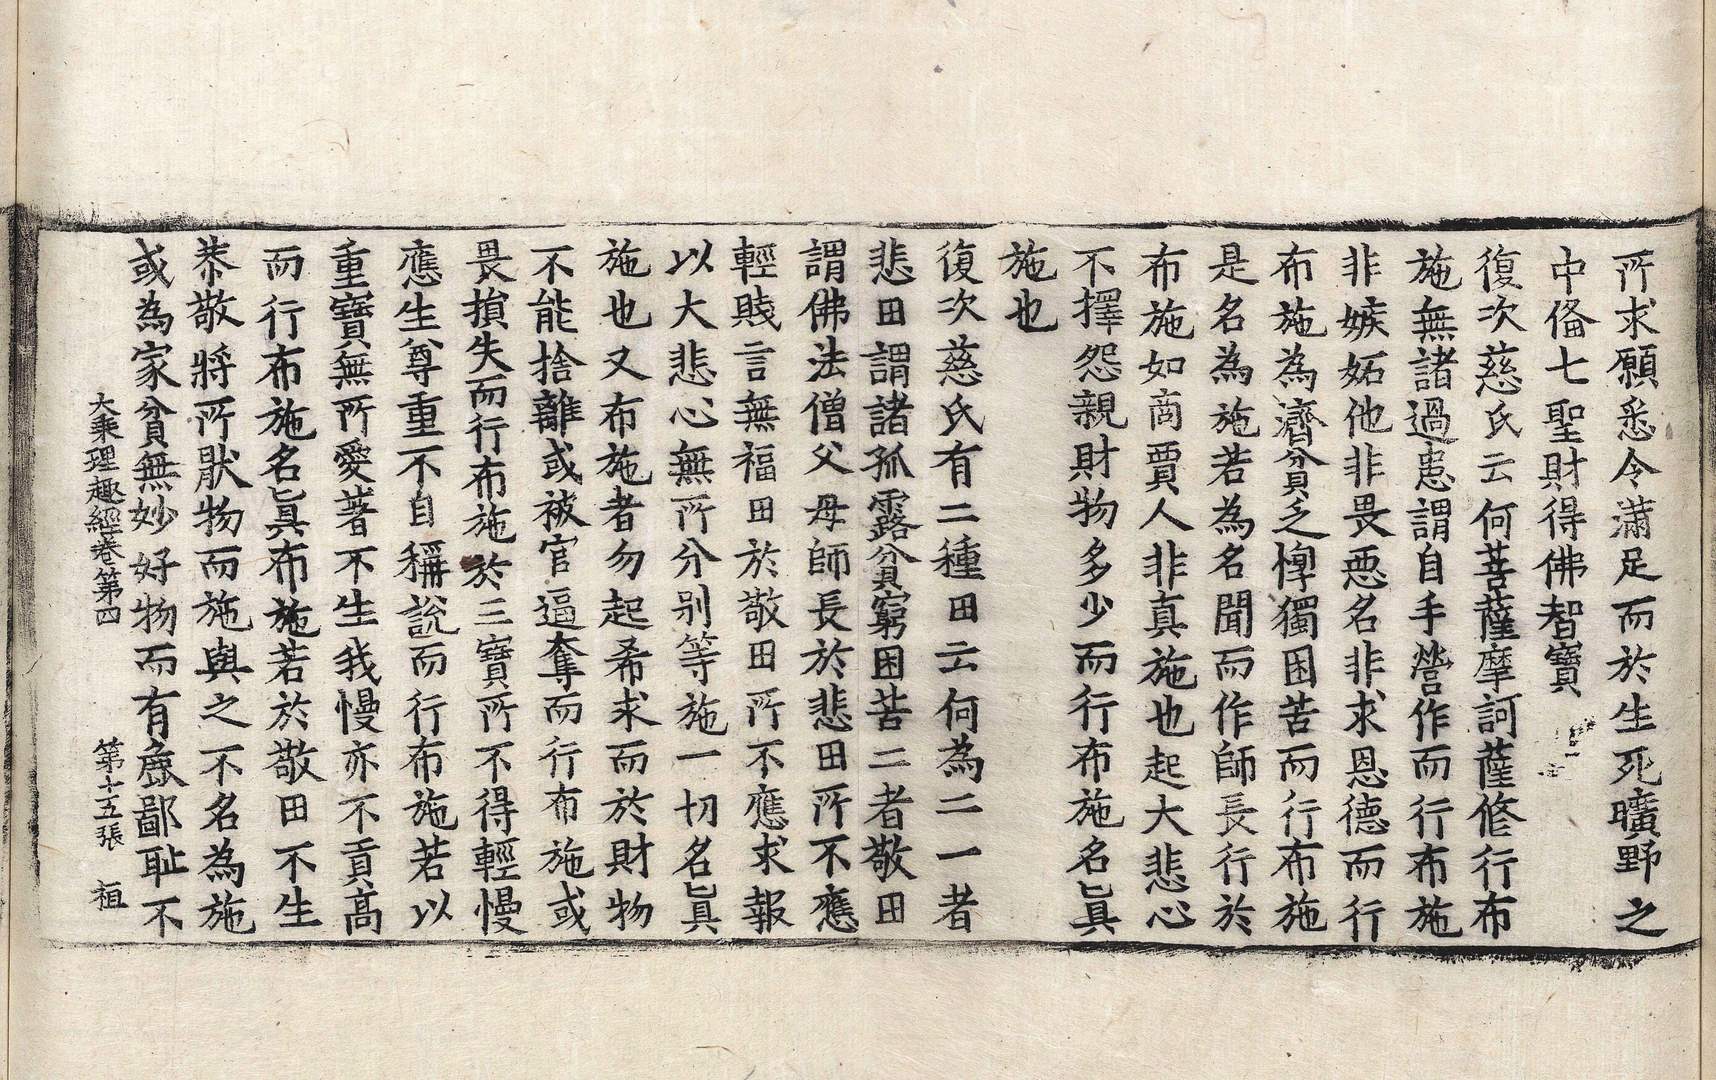 所求願悉令滿足而於生死曠野之
中俻七聖財得佛智寶
復次慈氏云何菩薩摩訶薩修行布
施無諸過患謂自手營作而行布施
非嫉妬他非畏惡名非求恩德而行
布施為濟貧乏惸獨困苦而行布施
是名為施若為名聞而作師長行於
布施如商賈人非真施也起大悲心
不擇怨親財物多少而行布施名眞
施也
復次慈氏有二種田云何為二一者
悲田謂諸孤露貧窮困苦二者敬田
謂佛法僧父母師長於悲田所不應
輕賤言無福田於敬田所不應求報
以大悲心無所分别等施一切名眞
施也又布施者勿起希求而於財物
不能捨離或被官逼奪而行布施或
畏損失而行布施於三寶所不得輕慢
應生尊重不自稱說而行布施若以
重寶無所愛著不生我慢亦不貢高
而行布施名眞布施若於敬田不生
恭敬將所猒物而施與之不名為施
或為家貧無妙好物而有麁鄙恥不
大乘理趣經卷第四 第十五張 祖